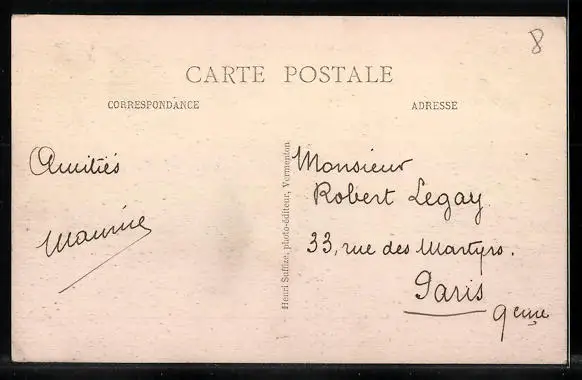 8
CARTE POSTALE
CORRESPONDANCE
ADRESSE
Amitiés
Maurice
Henri Suffize, photo-éditeur, Vermenton
Monsieur
Robert Legay
33, rue des Martyrs.
Paris
9eme